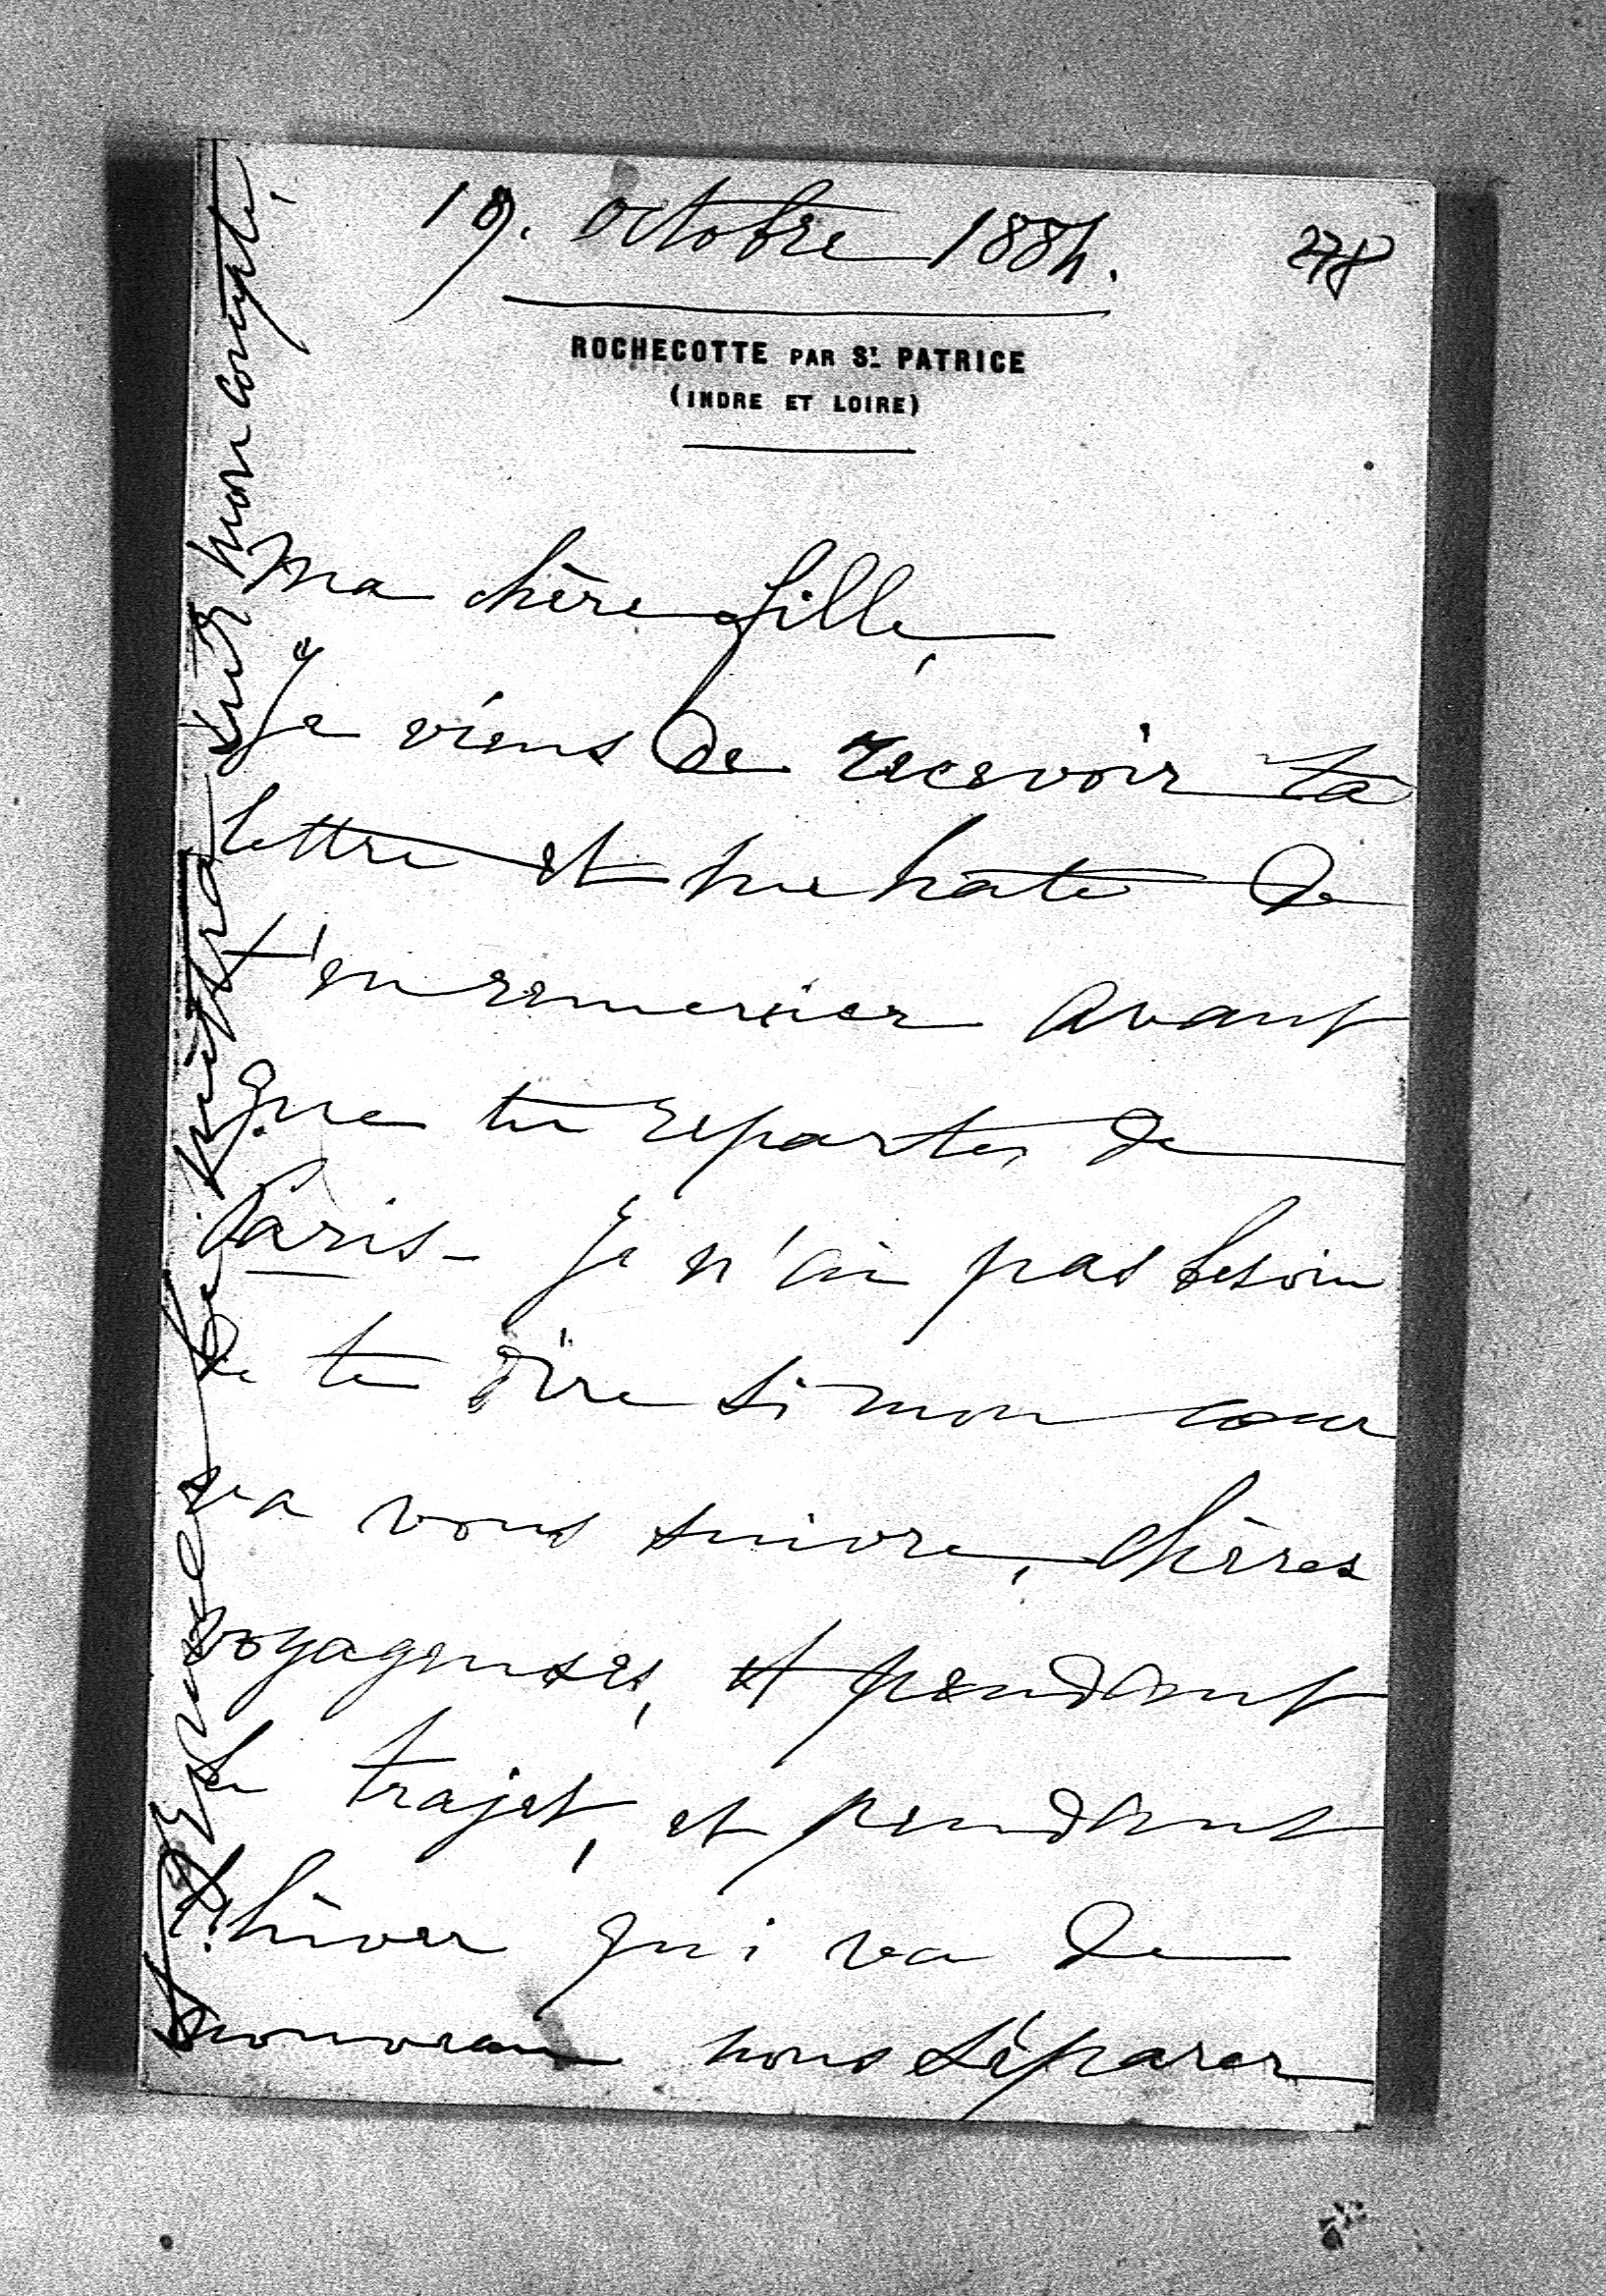 19. Octobre 1884.
278
ROCHECOTTE PAR St. PATRICE
(INDRE ET LOIRE)
Ma chère fille,
Je viens de recevoir ta
lettre et me hâte de
t'en remercier avant
que tu repartes de
Paris - Je n'ai pas besoin
de te dire si mon cœur
va vous suivre, chères
voyageuses, et pendant
le trajet, et pendant
l'hiver qui va de
nouveau nous séparer
mettra sur mon compte,